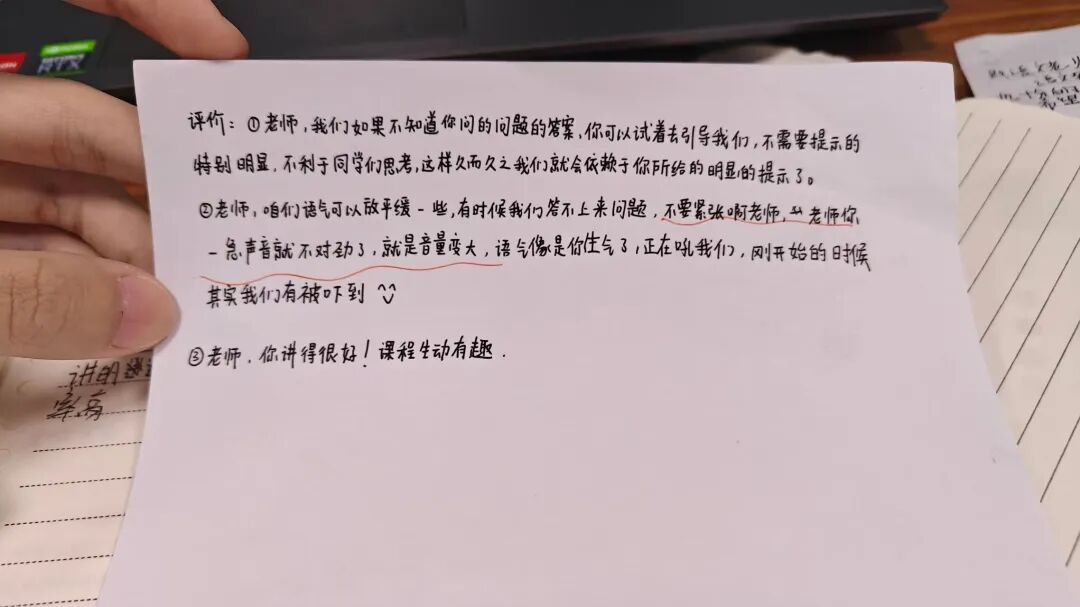 评价：①老师，我们如果不知道你问的问题的答案，你可以试着去引导我们，不需要提示的
特别明显，不利于同学们思考，这样久而久之我们就会依赖于你所给的明显的提示了。
②老师，咱们语气可以放平缓一些，有时候我们答不上来问题，不要紧张啊老师，老师你
一急声音就不对劲了，就是音量变大，语气像是你生气了，正在吼我们，刚开始的时候
其实我们有被吓到
③老师，你讲得很好！课程生动有趣．
讲明
案高
RTX